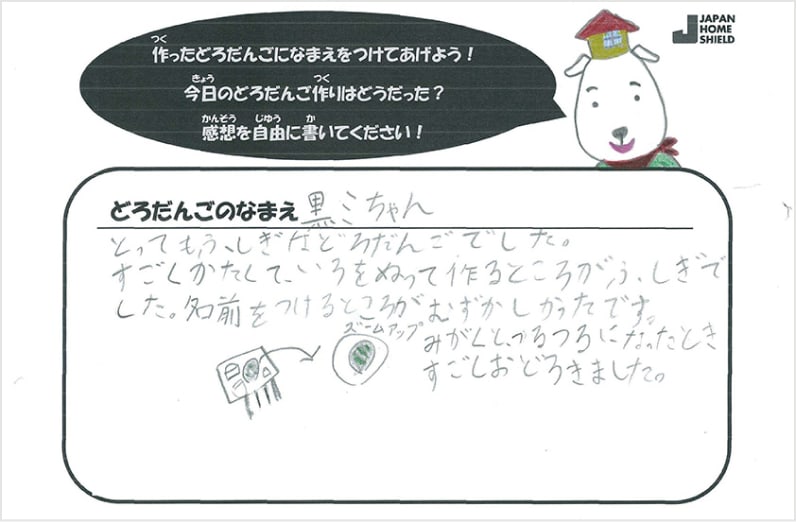 作ったどろだんごになまえをつけてあげよう！
今日のどろだんご作りはどうだった？
感想を自由に書いてください！
JAPAN
HOME
SHIELD
どろだんごのなまえ 黒ミちゃん
とってもふしぎなどろだんごでした。
すごくかたくて、いろをぬって作るところがふしぎで
した。名前をつけるところがむずかしかったです。
ズームアップ
みがくと、つるつるになったとき
すごしおどろきました。